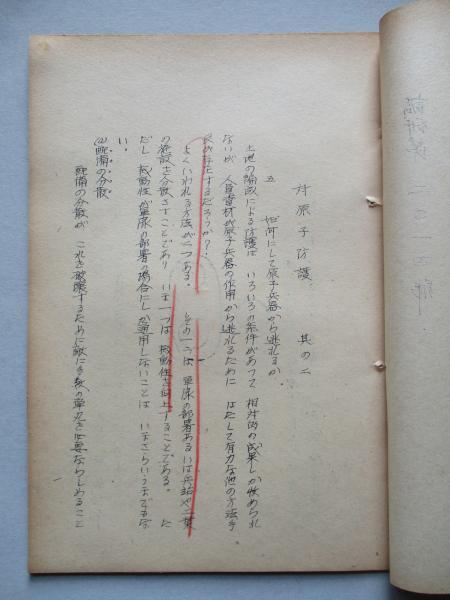 対原子防護　其の二
五　如何にして原子兵器から逃れるか
土地の編成による防護は　いろいろの条件があつて　相対的の成果しか收められ
ないが　人員資材が原子兵器の作用から逃れるために　はたして有力な他の方法手
段が存在するだろうか？
よくいわれる方法が二つある。　その一つは　軍隊の部署あるいは兵站や工業
の施設を分散さすことであり　いま一つは　機動性を向上することである。　た
だし　機動性が軍隊の部署の場合にしか適用しないことは　いまさらいうまでもな
い。
(a)配備の分散
配備の分散が　これを破壊するために敵にも多数の弾丸を必要ならしめること